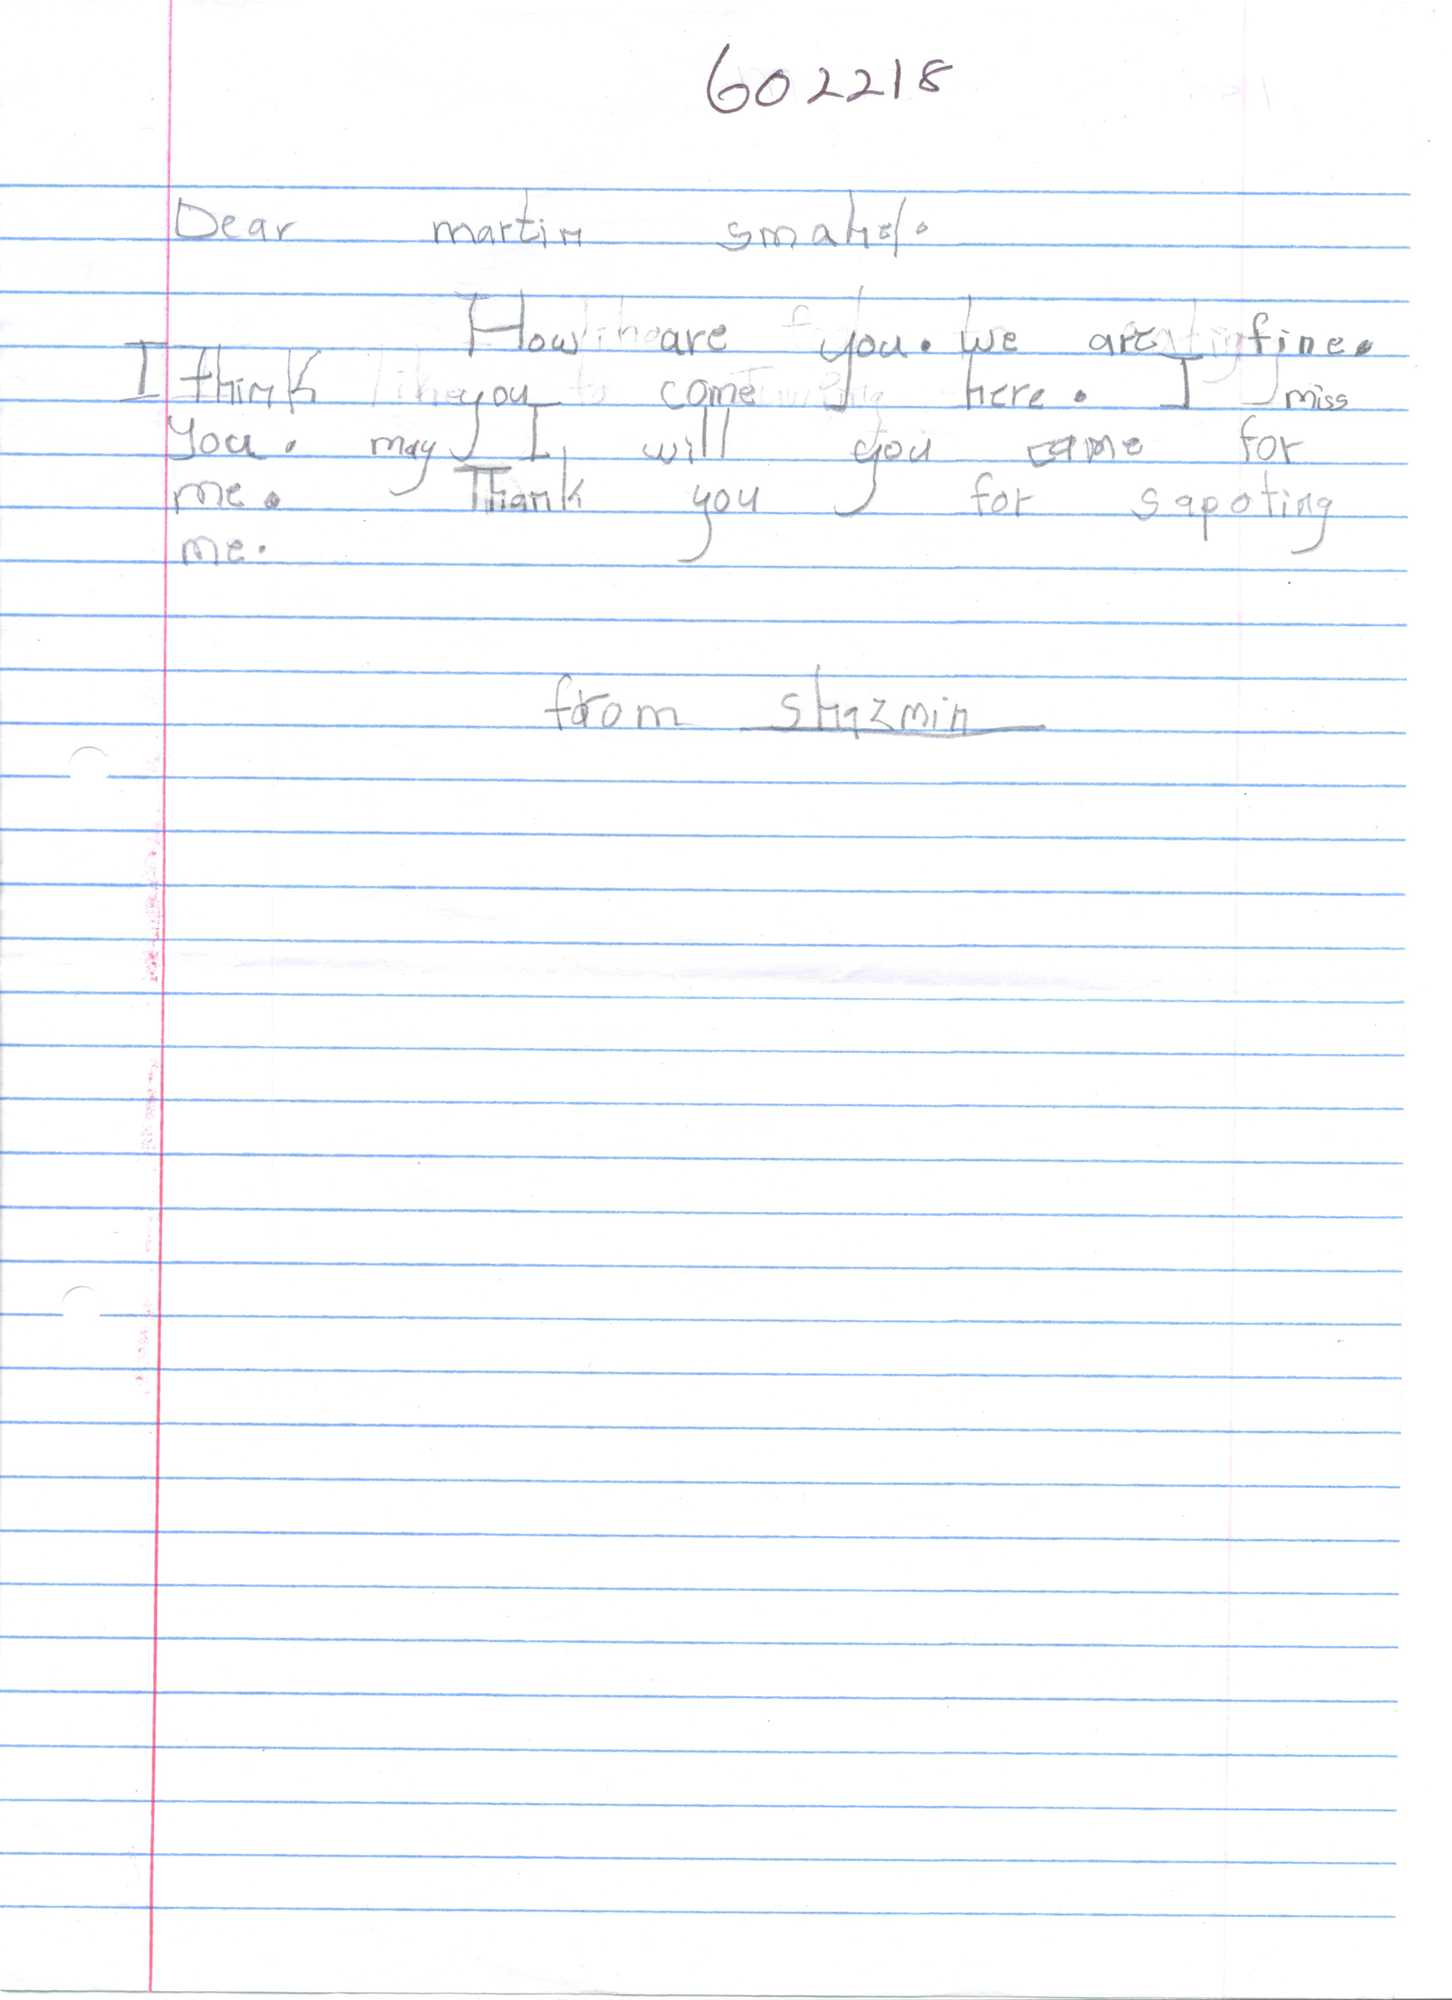 602218
Dear martin smahel.
How are you. we are fine.
I think you come here. I miss
you. may I will you came for
me. Thank you for sapoting
me.
from shazmin